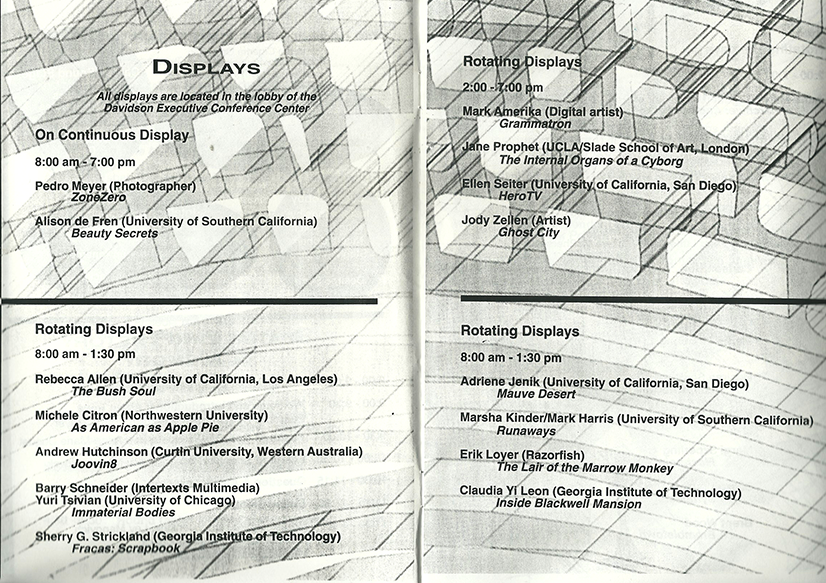 DISPLAYS
All displays are located in the lobby of the
Davidson Executive Conference Center
On Continuous Display
8:00 am - 7:00 pm
Pedro Meyer (Photographer)
ZoneZero
Alison de Fren (University of Southern California)
Beauty Secrets
Rotating Displays
8:00 am - 1:30 pm
Rebecca Allen (University of California, Los Angeles)
The Bush Soul
Michele Citron (Northwestern University)
As American as Apple Pie
Andrew Hutchinson (Curtin University, Western Australia)
Joovin8
Barry Schneider (Intertexts Multimedia)
Yuri Tsivian (University of Chicago)
Immaterial Bodies
Sherry G. Strickland (Georgia Institute of Technology)
Fracas: Scrapbook
Rotating Displays
2:00 - 7:00 pm
Mark Amerika (Digital artist)
Grammatron
Jane Prophet (UCLA/Slade School of Art, London)
The Internal Organs of a Cyborg
Ellen Seiter (University of California, San Diego)
HeroTV
Jody Zellen (Artist)
Ghost City
Rotating Displays
8:00 am - 1:30 pm
Adriene Jenik (University of California, San Diego)
Mauve Desert
Marsha Kinder/Mark Harris (University of Southern California)
Runaways
Erik Loyer (Razorfish)
The Lair of the Marrow Monkey
Claudia Yi Leon (Georgia Institute of Technology)
Inside Blackwell Mansion